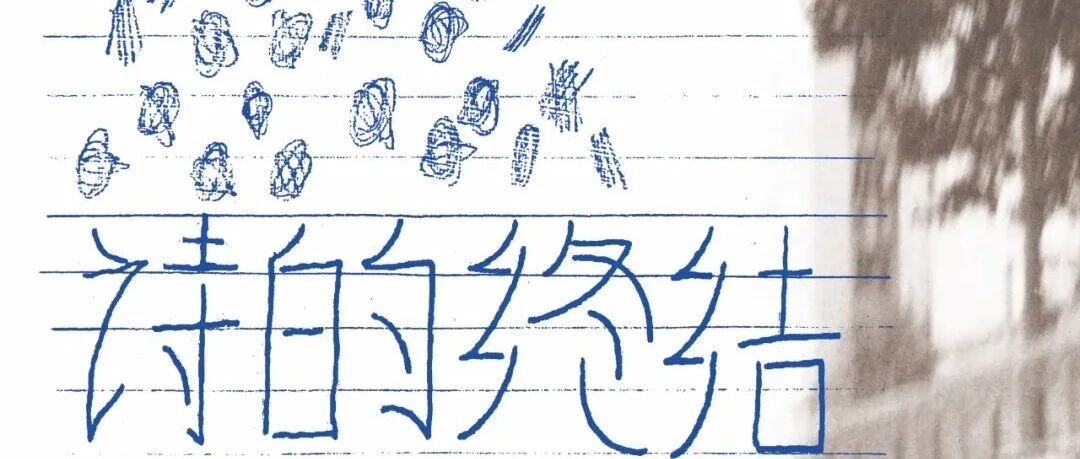 诗的终结